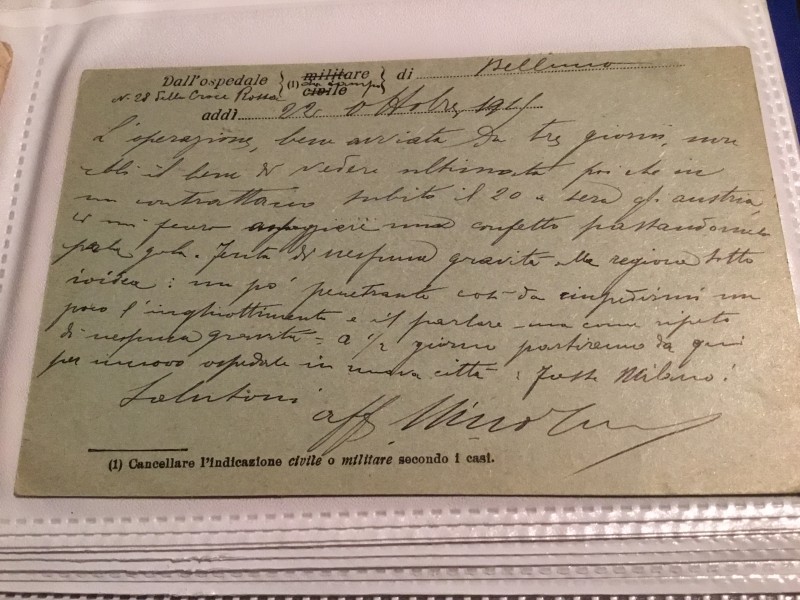 Dall'ospedale (1) militare civile da campo di Belluno
N. 28 della Croce Rossa
addì 22 Ottobre 191
L'operazione, bene avviata da tre giorni, non
ebbi il bene di vedere ultimata poi che in
un contrattacco subito il 20 a sera gl'austria
ci mi fecero una confetto passandomelo
pela gola. Ferita di nessuna gravità alla regione sotto
ioidea: un po' penetrante così da impedirmi un
poco l'inghiottimento e il parlare - ma come ripeto
di nessuna gravità = a 1/2 giorno partiremo da qui
per nuovo ospedale in nuova città: fosse Milano!
Salutoni
aff. Nino
(1) Cancellare l'indicazione civile o militare secondo i casi.